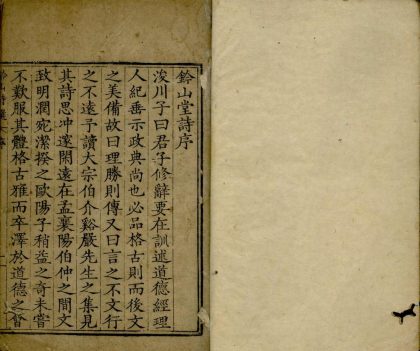 鈐山堂詩序
浚川子曰君子修辭要在訓述道德經理
人紀垂示政典尚也必品格古則而後文
之美備故曰理勝則傳又曰言之不文行
之不遠予讀大宗伯介谿嚴先生之集見
其詩思冲邃閑遠在孟襄陽伯仲之間文
致明潤宛潔揆之歐陽子稍益之奇未嘗
不歎服其體格古雅而卒澤於道德之會